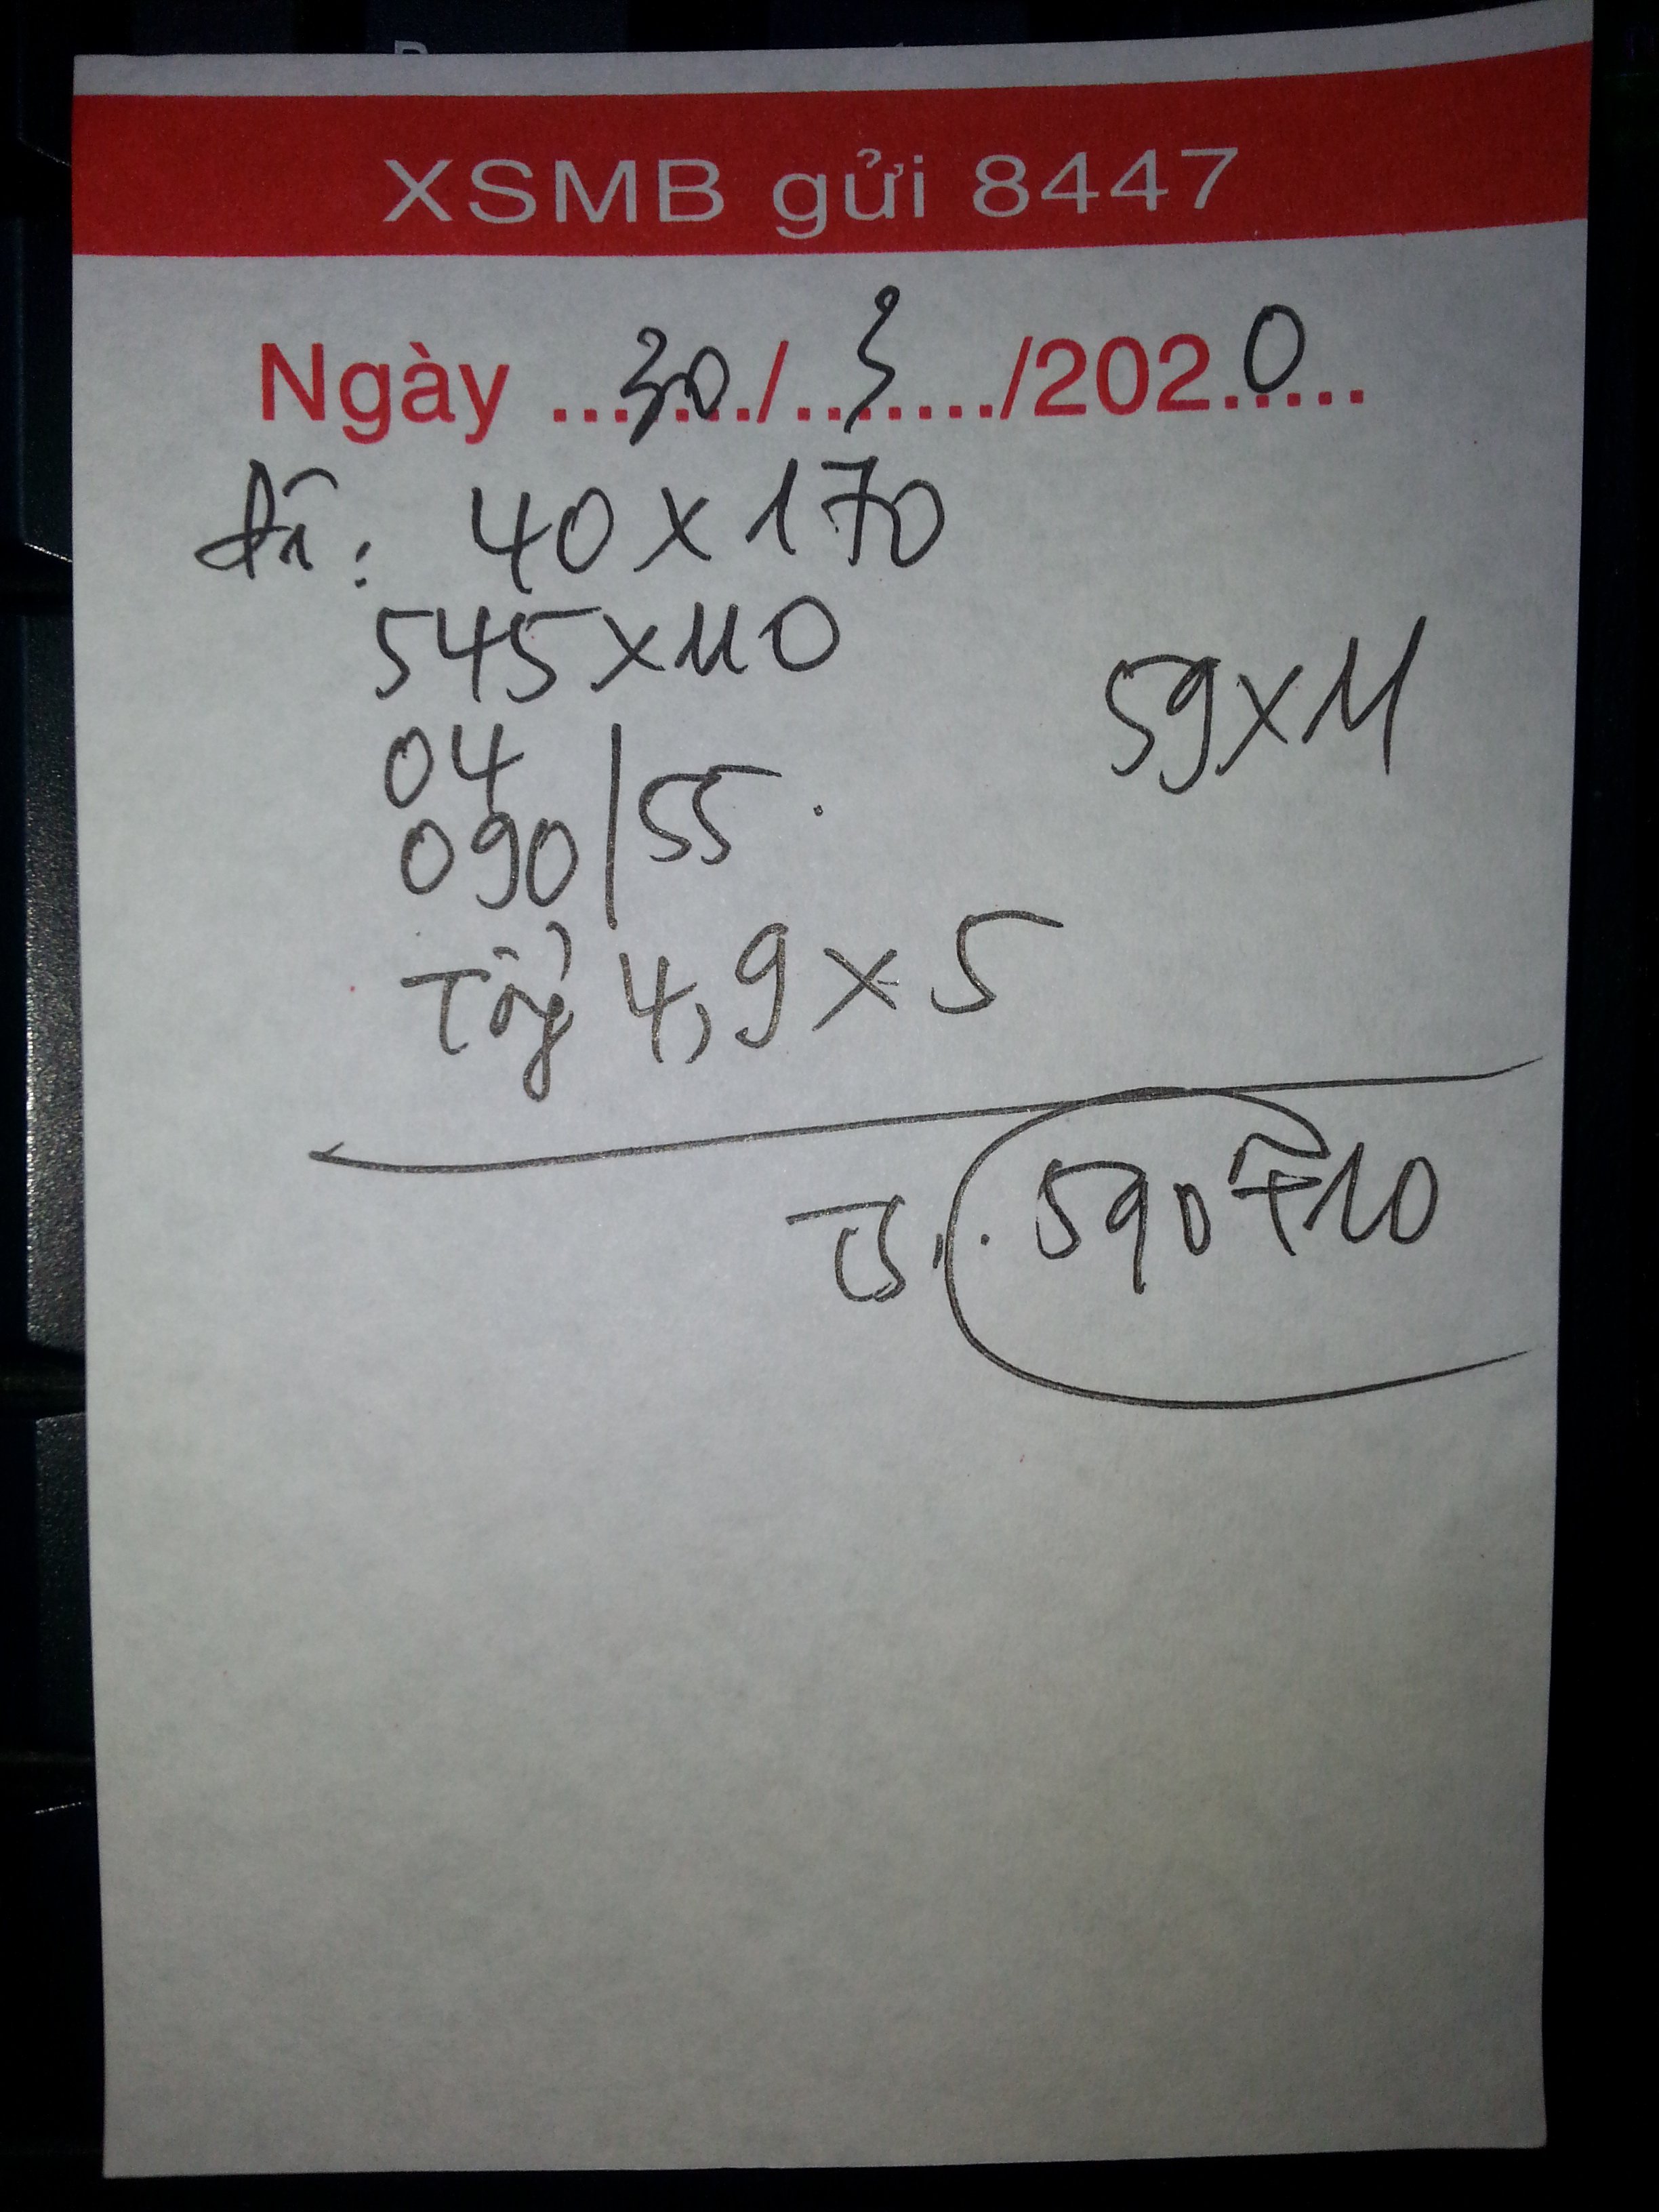 XSMB gửi 8447
Ngày ...30.../...3...../2020.....
Đề: 40 x 170
545 x 110
59 x 11
04
090 | 55.
Tổng 4,9 x 5
590 + 110